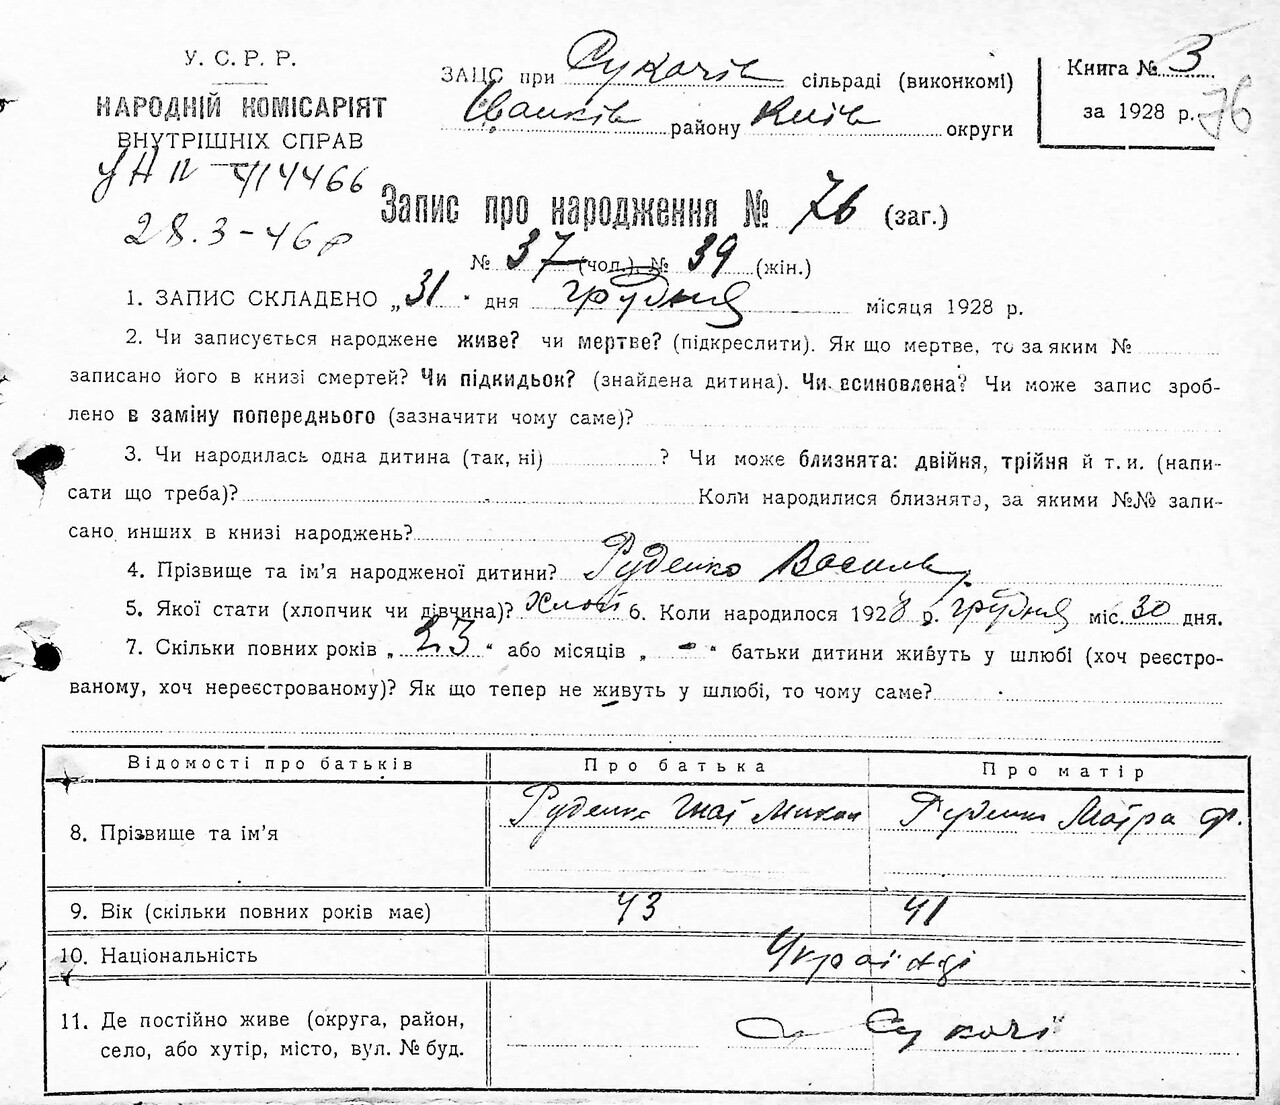 У. С. Р. Р.
НАРОДНІЙ КОМІСАРІЯТ
ВНУТРІШНІХ СПРАВ
УАП 414466
28.3-46р
ЗАЦС при Сукачів сільраді (виконкомі)
Іванків району Київ округи
Книга № 3
за 1928 р. 76
Запис про народження № 76 (заг.)
№ 37 (чол.), № 39 (жін.)
1. ЗАПИС СКЛАДЕНО „31" дня грудня місяця 1928 р.
2. Чи записується народжене живе? чи мертве? (підкреслити). Як що мертве, то за яким №
записано його в книзі смертей? Чи підкидьок? (знайдена дитина). Чи всиновлена? Чи може запис зроб-
лено в заміну попереднього (зазначити чому саме)?
3. Чи народилась одна дитина (так, ні) ? Чи може близнята: двійня, трійня й т. и. (напи-
сати що треба)? Коли народилися близнята, за якими №№ запи-
сано инших в книзі народжень?
4. Прізвище та ім'я народженої дитини? Руденко Василь
5. Якої стати (хлопчик чи дівчина)? Хлоп 6. Коли народилося 1928 р. грудня міс. 30 дня.
7. Скільки повних років „ 23 " або місяців „ - " батьки дитини живуть у шлюбі (хоч реєстро-
ваному, хоч нереєстрованому)? Як що тепер не живуть у шлюбі, то чому саме?
Відомості про батьків Про батька Про матір
8. Прізвище та ім'я Руденко Гнат Микол Руденко Мотра Ф.
9. Вік (скільки повних років має) 43 41
10. Національність Українці
11. Де постійно живе (округа, район,
село, або хутір, місто, вул. № буд.
с. Сукачі